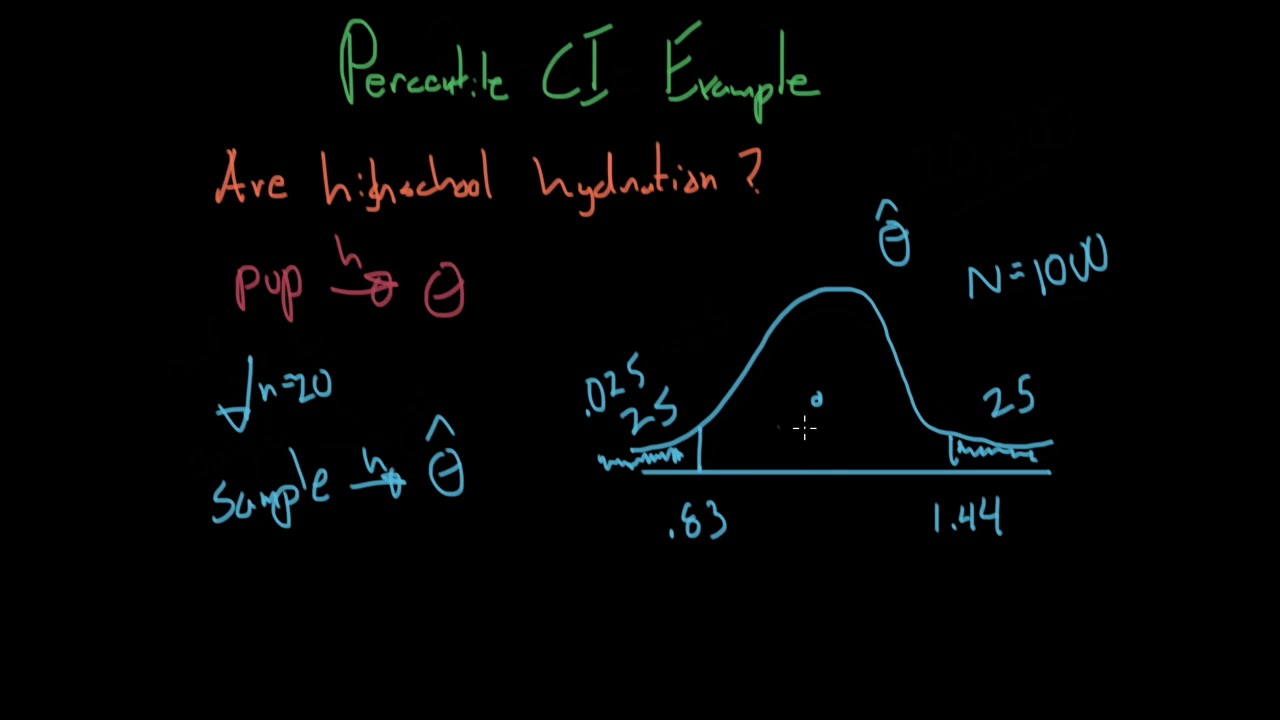 Percentile CI Example
Are highschool hydration ?
pop h→ θ
n=20
sample h→ θ̂
θ̂
N=1000
.025
25
25
.83
1.44